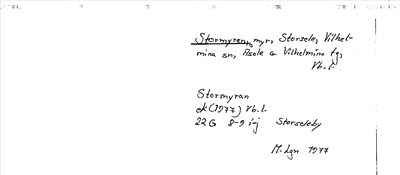 Stormyran, myr, Storsele, Vilhel-
mina sn, Åsele o Vilhelmina tg,
Vb. l.
Stormyran
ek (1977) Vb. l.
22G 8-9 i-j Storseleby
M. Lgn 1977